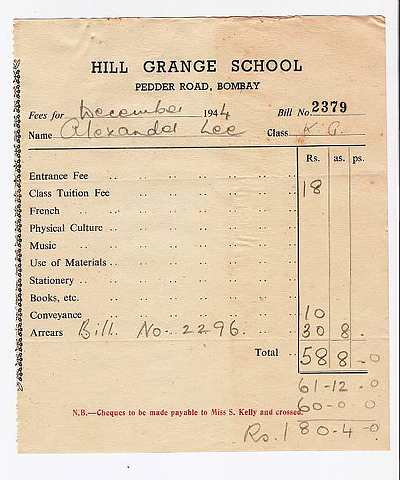 HILL GRANGE SCHOOL
PEDDER ROAD, BOMBAY
Fees for December 1944 Bill No. 2379
Name Alexander Lee Class K.G.
Rs. as. ps.
Entrance Fee
Class Tuition Fee 18
French
Physical Culture
Music
Use of Materials
Stationery
Books, etc.
Conveyance 10
Arrears Bill No. 2296. 30 8 .
Total 58 8 -0
61-12-0
60-0-0
N.B.—Cheques to be made payable to Miss S. Kelly and crossed.
Rs. 180-4-0